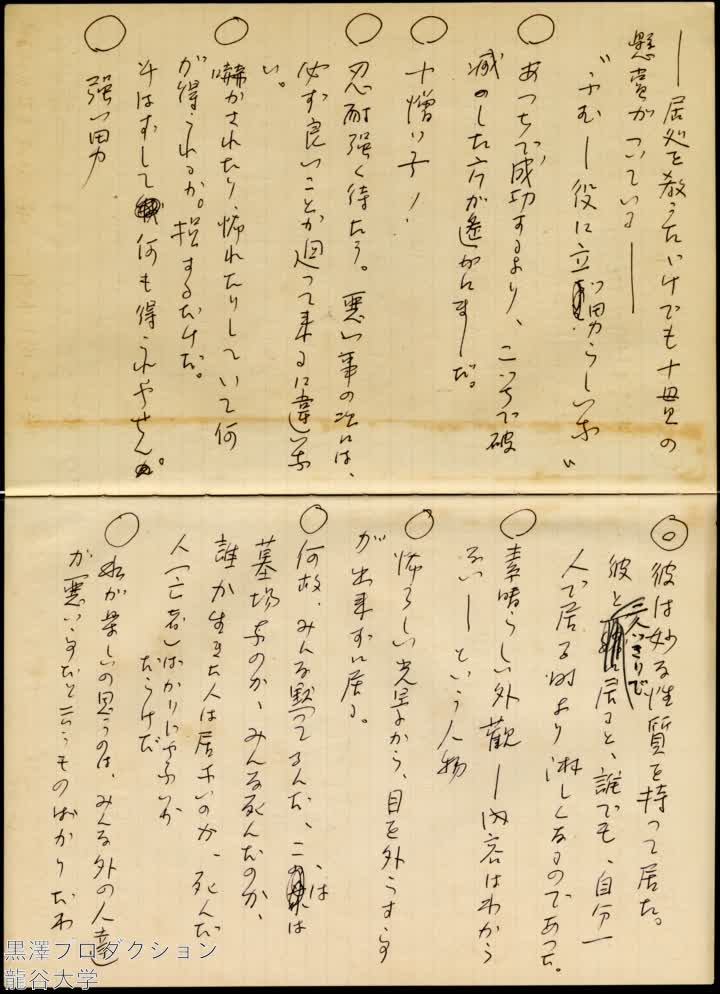 ―居処を教えたゞけでも十四貫の
懸賞がついている――
"ふむ―役に立つ男らしいな"
○あっちで成功するより、こっちで破
滅のした方が遙かにまーだ。
○十憎い子！
○忍耐強く待たう。悪い事の次には、
必ず良いことが廻って来るに違いな
い。
○嚇かされたり、怖れたりしていて何
が得られるか。損するだけだ。
そはずして何も得られやせん。
○強い男
◎彼は妙な性質を持って居た。
彼と二人っきりで居ると、誰でも、自分一
人で居る時より淋しくなるのであった。
○素晴らしい外観―内容はわから
ない―という人物
○怖ろしい光景から、目を外らす
が出来ずに居る。
○何故、みんな黙ってるんだ、こゝは
墓場なのか、みんな死んだのか、
誰か生きた人は居ないのか、死んだ
人（亡者）ばかりぢゃないか
だらけだ
○私が楽しいの思うのは、みんな外の人達
が悪い事だと云うものばかりだわ
黒澤プロダクション
龍谷大学